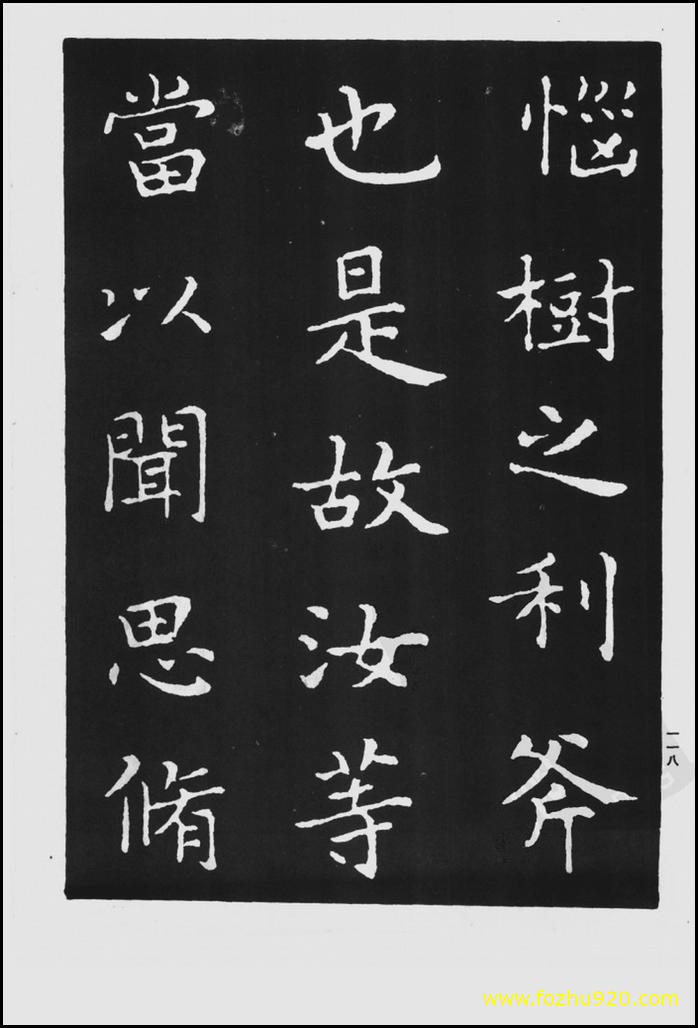 惱樹之利斧
也是故汝等
當以聞思脩
一一八
www.fozhu920.com